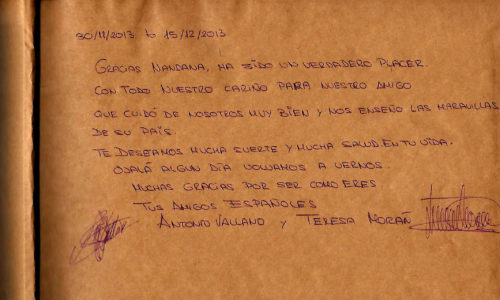 30/11/2013 to 15/12/2013
GRACIAS NANDANA, HA SIDO UN VERDADERO PLACER.
CON TODO NUESTRO CARIÑO PARA NUESTRO AMIGO
QUE CUIDÓ DE NOSOTROS MUY BIEN Y NOS ENSEÑO LAS MARAVILLAS
DE SU PAÍS.
TE DESEAMOS MUCHA SUERTE Y MUCHA SALUD EN TU VIDA.
OJALÁ ALGUN DÍA VOLVAMOS A VERNOS.
MUCHAS GRACIAS POR SER COMO ERES
TUS AMIGOS ESPAÑOLES
ANTONIO Y TERESA